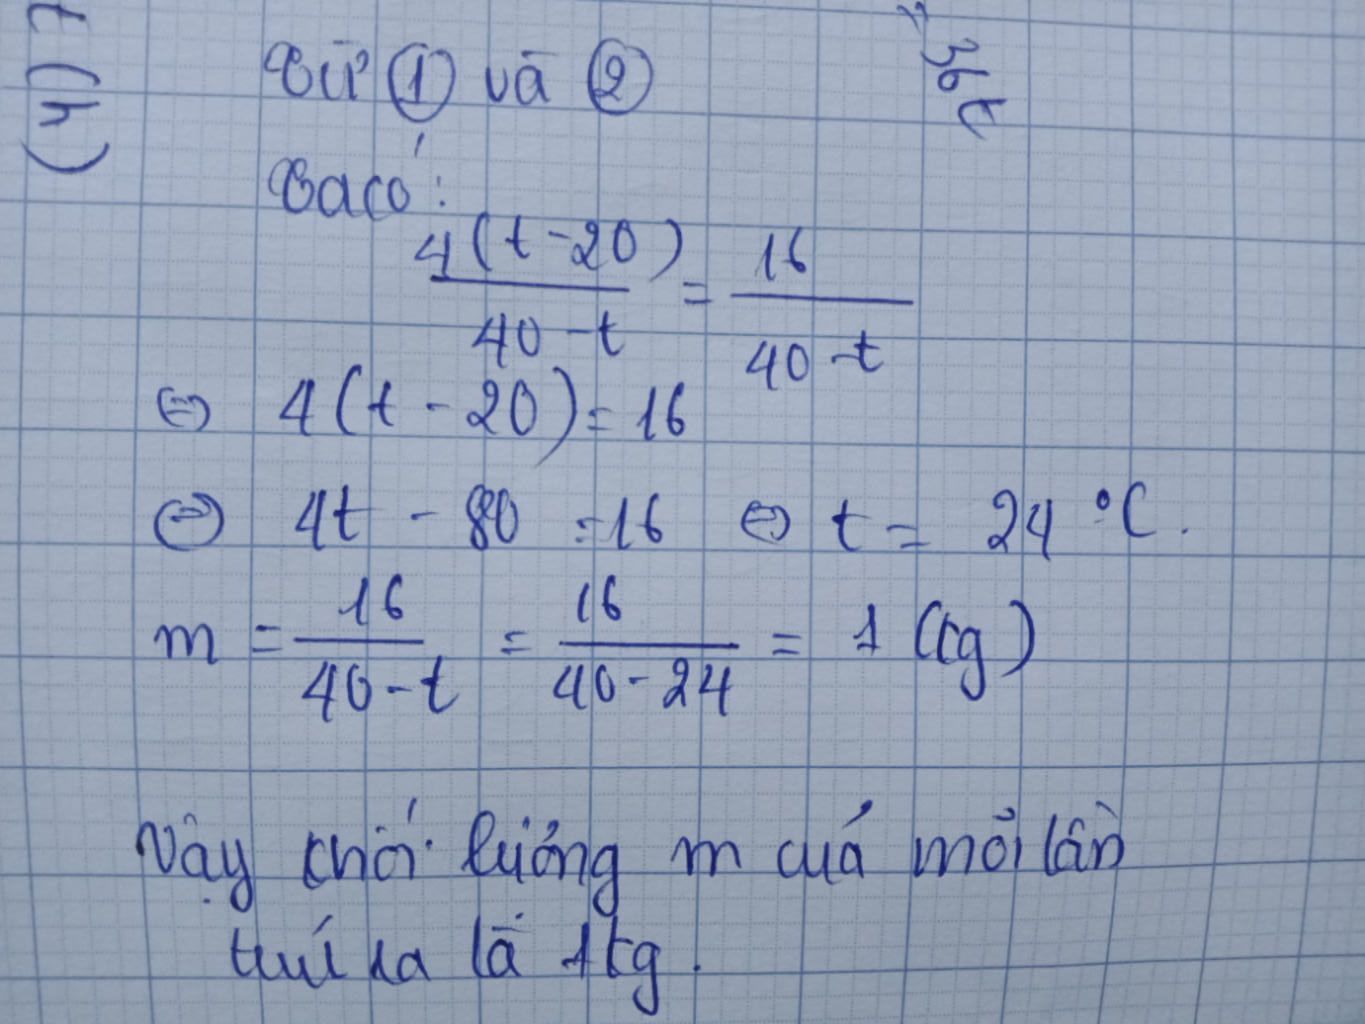 Từ ① và ②
Ta có:
4(t-20)/40-t = 16/40-t
⇔ 4(t - 20) = 16
⇔ 4t - 80 = 16 ⇔ t = 24 °C.
m = 16/40-t = 16/40-24 = 1 (kg)
Vậy khối lượng m của mỗi lần
trút ra là 1kg.
36t